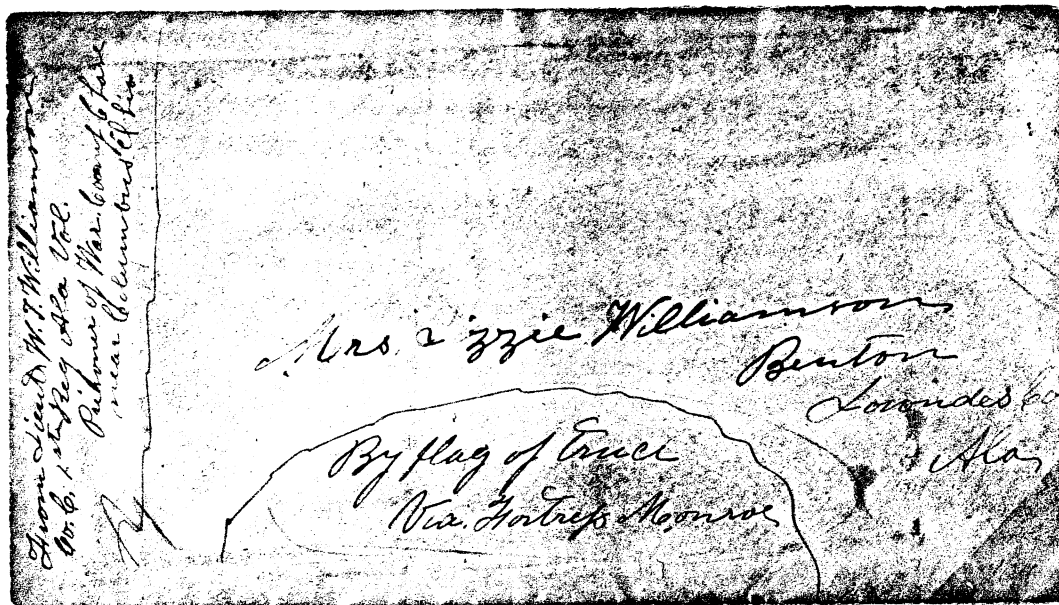 From Lieut W. T. Williamson
Co. C, 1st Reg Ala Vol.
Prisoner of War. Camp Chase
near Columbus Ohio
Mrs. Lizzie Williamson
Benton
Lowndes Co
Ala,
By flag of Truce
Via. Fortress Monroe